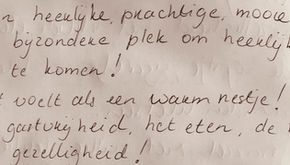 n heerlijke, prachtige, mooie
bijzondere plek om heerlij
te komen!
t voelt als een warm nestje!
gastvrijheid, het eten, de
gezelligheid!